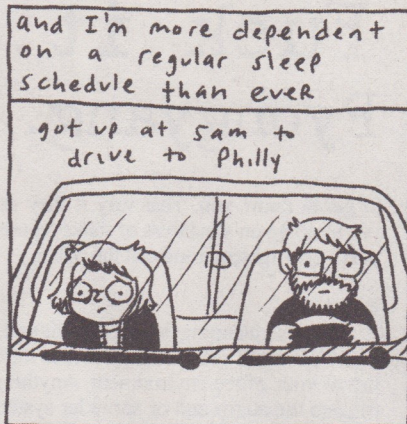 and I'm more dependent
on a regular sleep
schedule than ever
got up at 5am to
drive to Philly